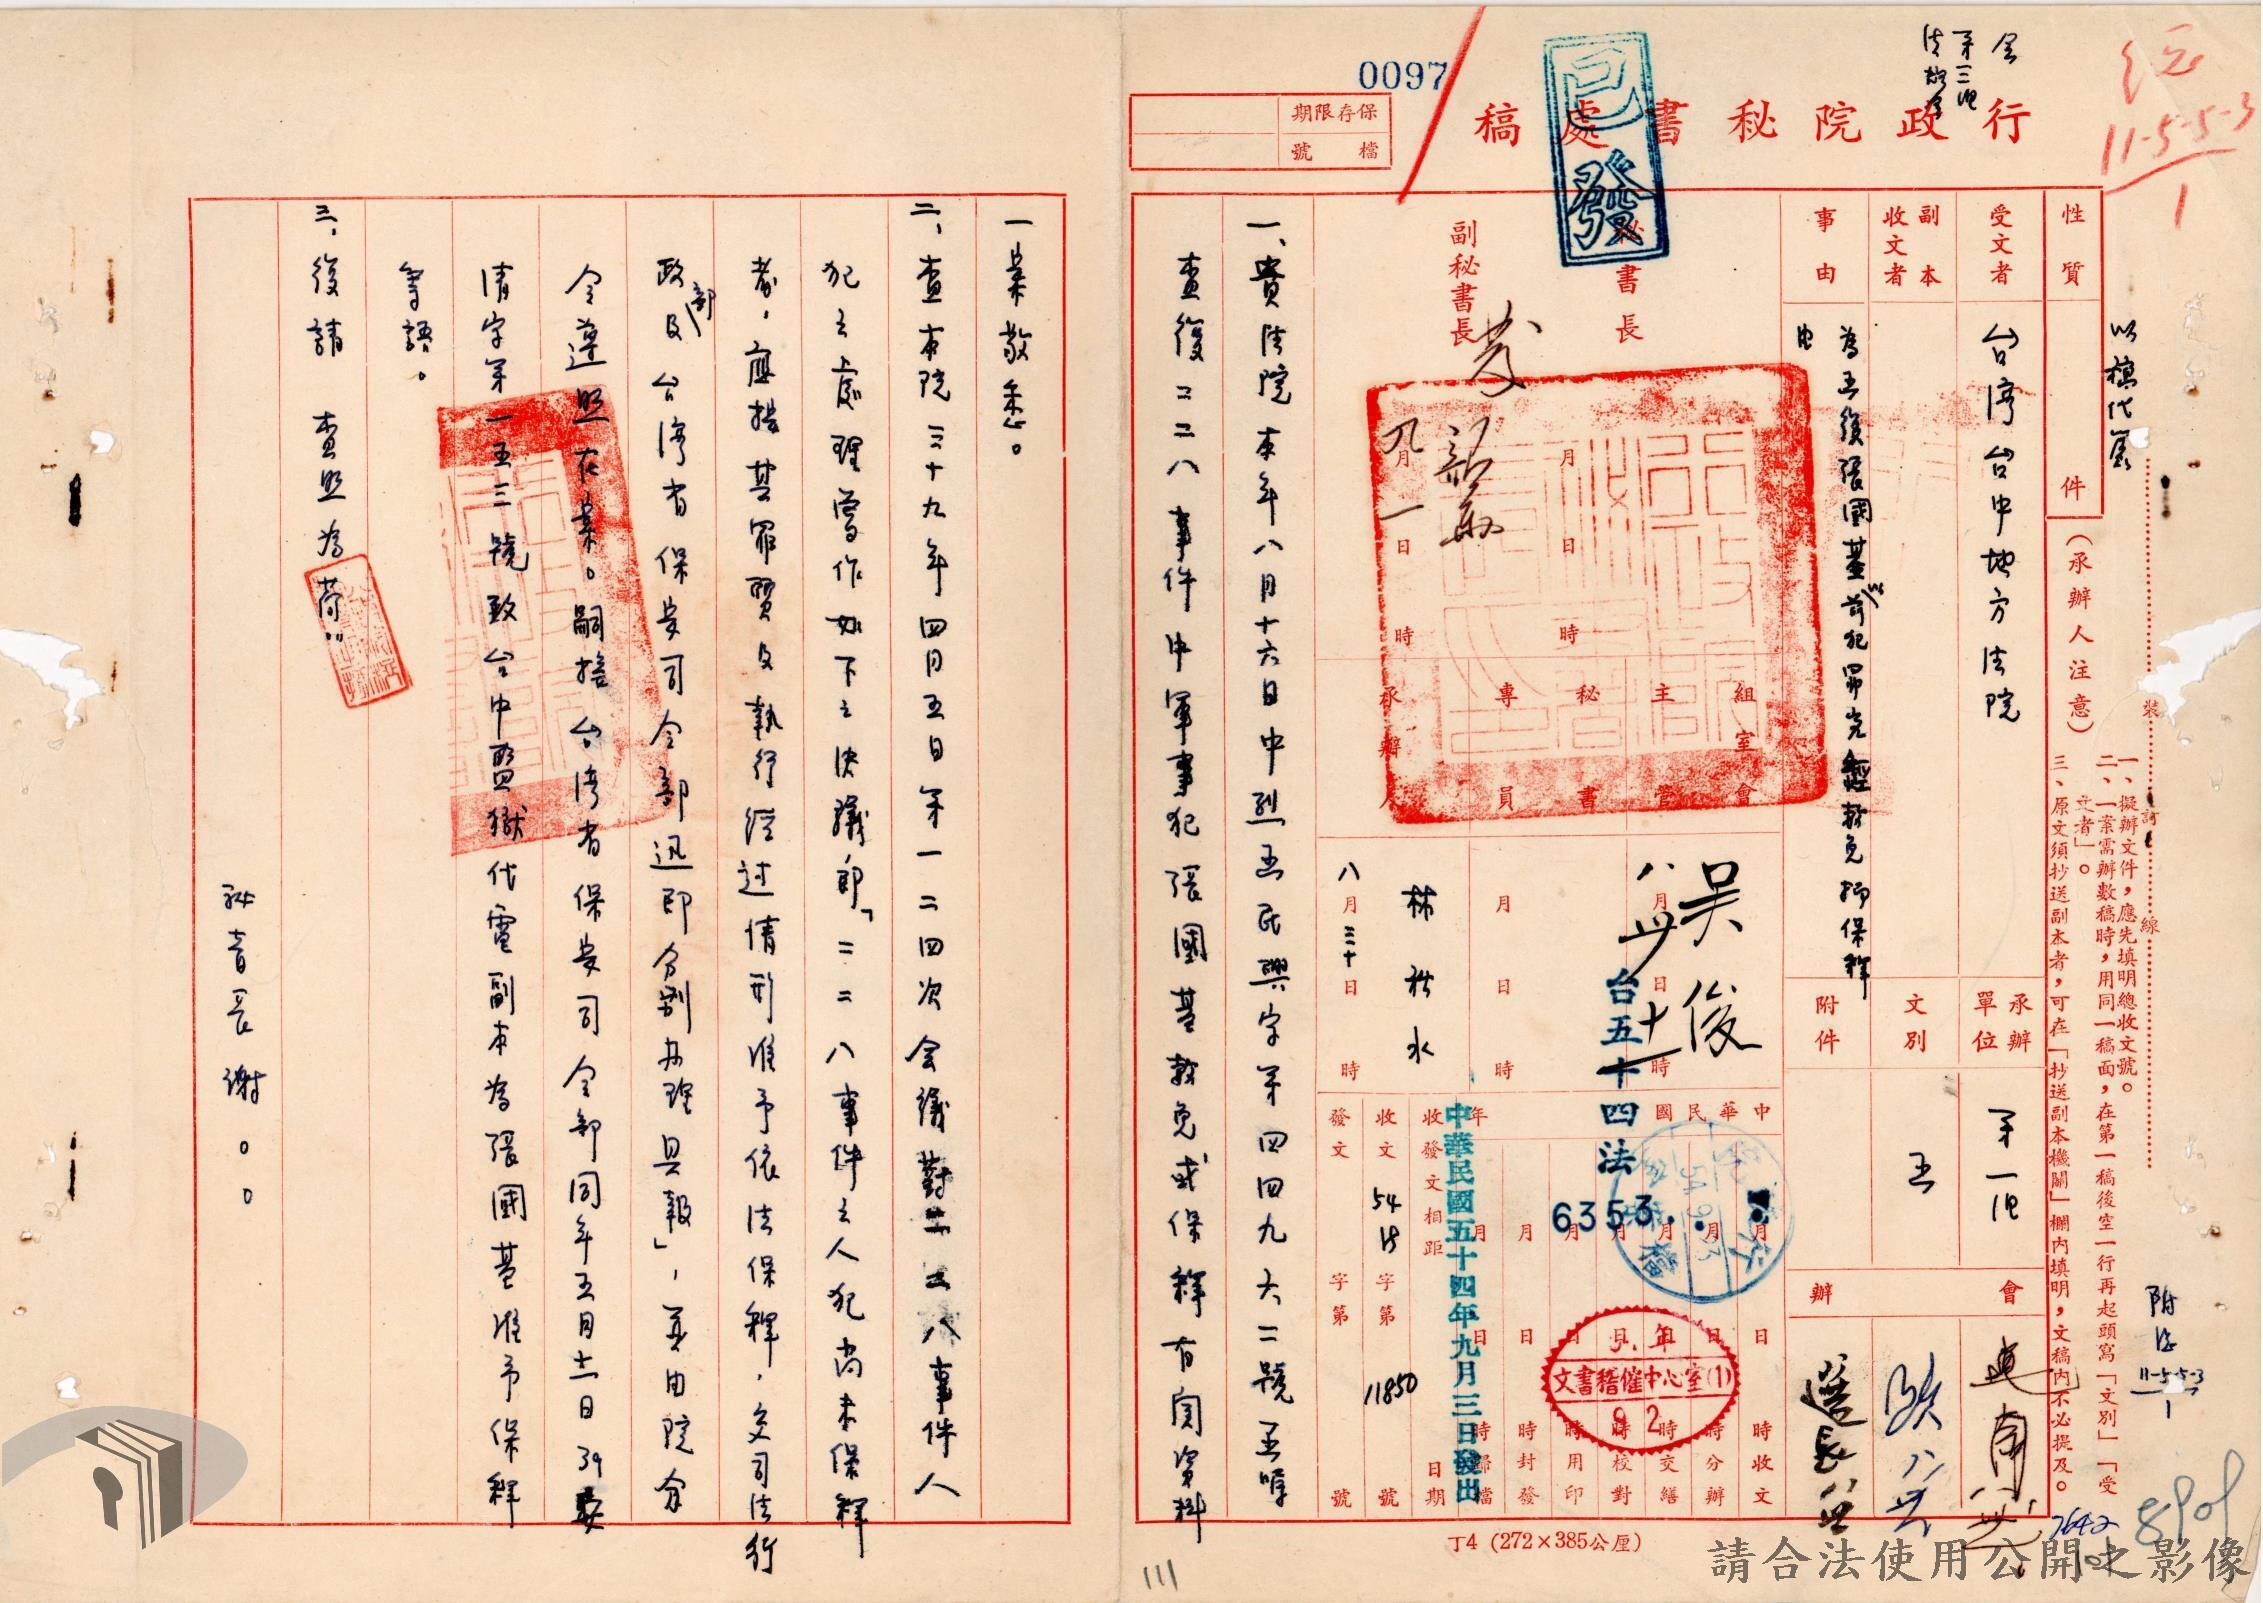 0097
保存限期
檔號
行政院秘書處稿
已發
11-5-5-3
1
以稿代簽
性質
件
(承辦人注意)
一、擬辦文件,應先填明總收文號。
二、一案需辦數稿時,用同一稿面,在第一稿後空一行再起頭寫「文別」「受文者」。
三、原文須抄送副本者,可在「抄送副本機關」欄內填明,文稿內不必提及。
裝訂線
受文者
台灣台中地方法院
副本收文者
事由
為函復張國基前犯罪究經赦免抑保釋由
承辦單位
第一組
文別
函
附件
會辦
秘書長
副秘書長
九月一日
月日時
組主秘專承
室管書員辦
會人
吳俊
八月
林秋水
八月三十日時
台五十四法
6353
中華民國年
月日時收文
月日時分辦
月日時交繕
月日時校對
月日時用印
月日時封發
月日時歸檔
收發文相距日期
收文54法字第11850號
發文字第號
中華民國五十四年九月三日發出
文書稽催中心室(1)
9 2
附件
11-5-5-3
1
7642
一、貴法院本年八月十六日中烈函民興字第四四九六二號函囑
查復二二八事件中軍事犯張國基赦免或保釋有關資料
一案敬悉。
二、查本院三十九年四月五日第一二四次會議對二二八事件人
犯之處理曾作如下之決議:「二二八事件之人犯尚未保釋
者,應按其罪質及執行經過情形准予依法保釋,交司法行
政部及台灣省保安司令部迅即分別辦理具報」,並由院分
令遵照在案。嗣據台灣省保安司令部同年五月十一日39安
清字第一五三號致台中監獄代電副本為張國基准予保釋
等語。
三、復請 查照為荷。
秘書長謝○○
丁4 (272×385公厘)
111
請合法使用公開之影像